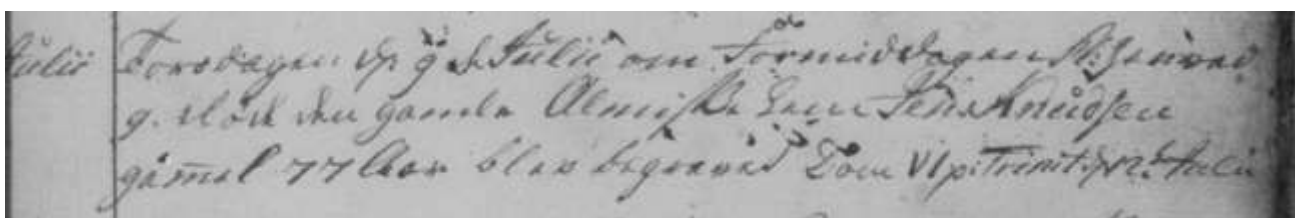 Julii Torsdagen d. 9de Julii om Formiddagen Kl. henved
9. døde den gamle Almisse Lem Jens Knudsen
gam̅el 77 Aar blev begraved Dom VI p. Trinit. d. 12te Julii